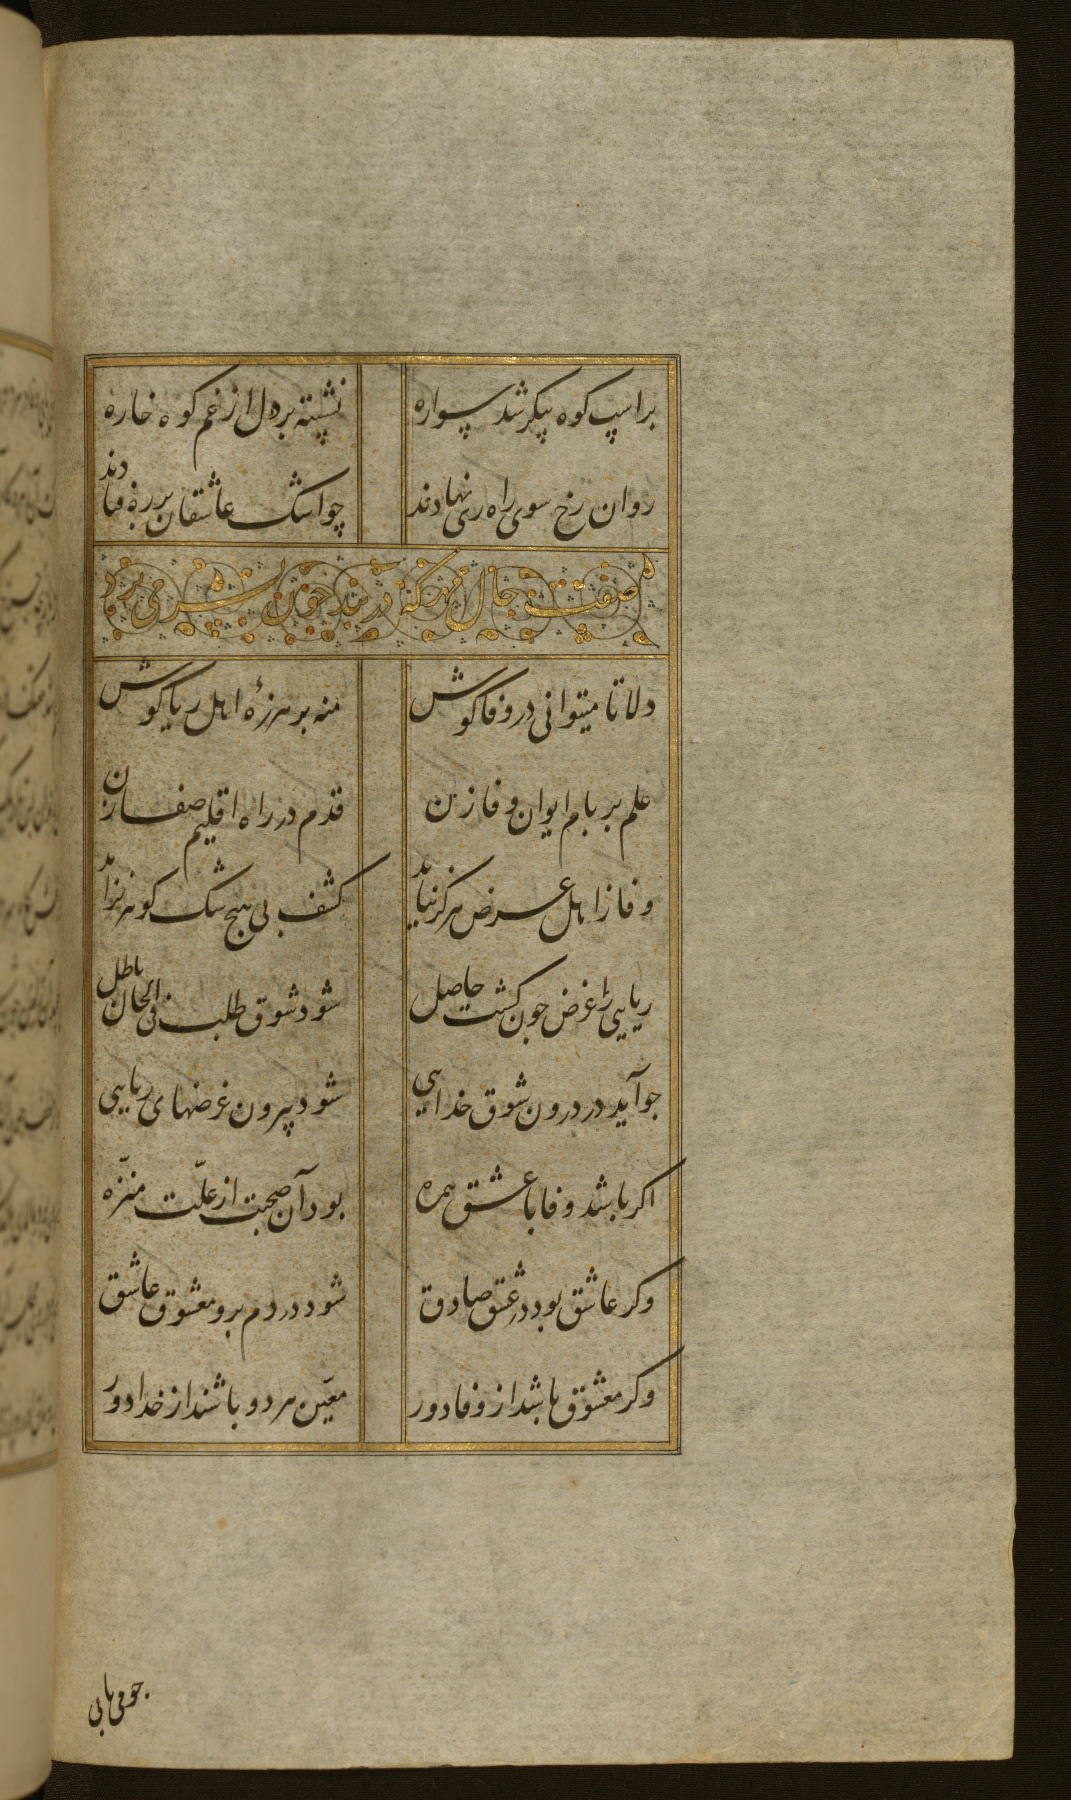 بر اسپ کوه پیکر شد سواره نشسته بر دل از غم کوه خاره
روان رخ سوی راه ری نهادند چو اشک عاشقان بر ره فتادند
صفت جال مهر که در بند خون بسر می برد
دلا تا میتوانی در وفا کوش منه بر هرزهٔ اهل ریا کوش
علم بر بام ایوان وفا زن قدم در راه اقلیم صفا زن
وفا ز اهل عرض هرکز نیاید کشف بی هیچ شک کوهر نزاید
ریایی را غرض چون کشت حاصل شود شوق طلب فی الحال باطل
چو آید در درون شوق خدایی شود بیرون غرضهای ریایی
اکر باشد وفا با عشق همره بود آن صحبت از علّت منزّه
وکر عاشق بود در عشق صادق شود در دم برو معشوق عاشق
وکر معشوق باشد از وفا دور معیّن هر دو باشند از خدا دور
چو می یابی